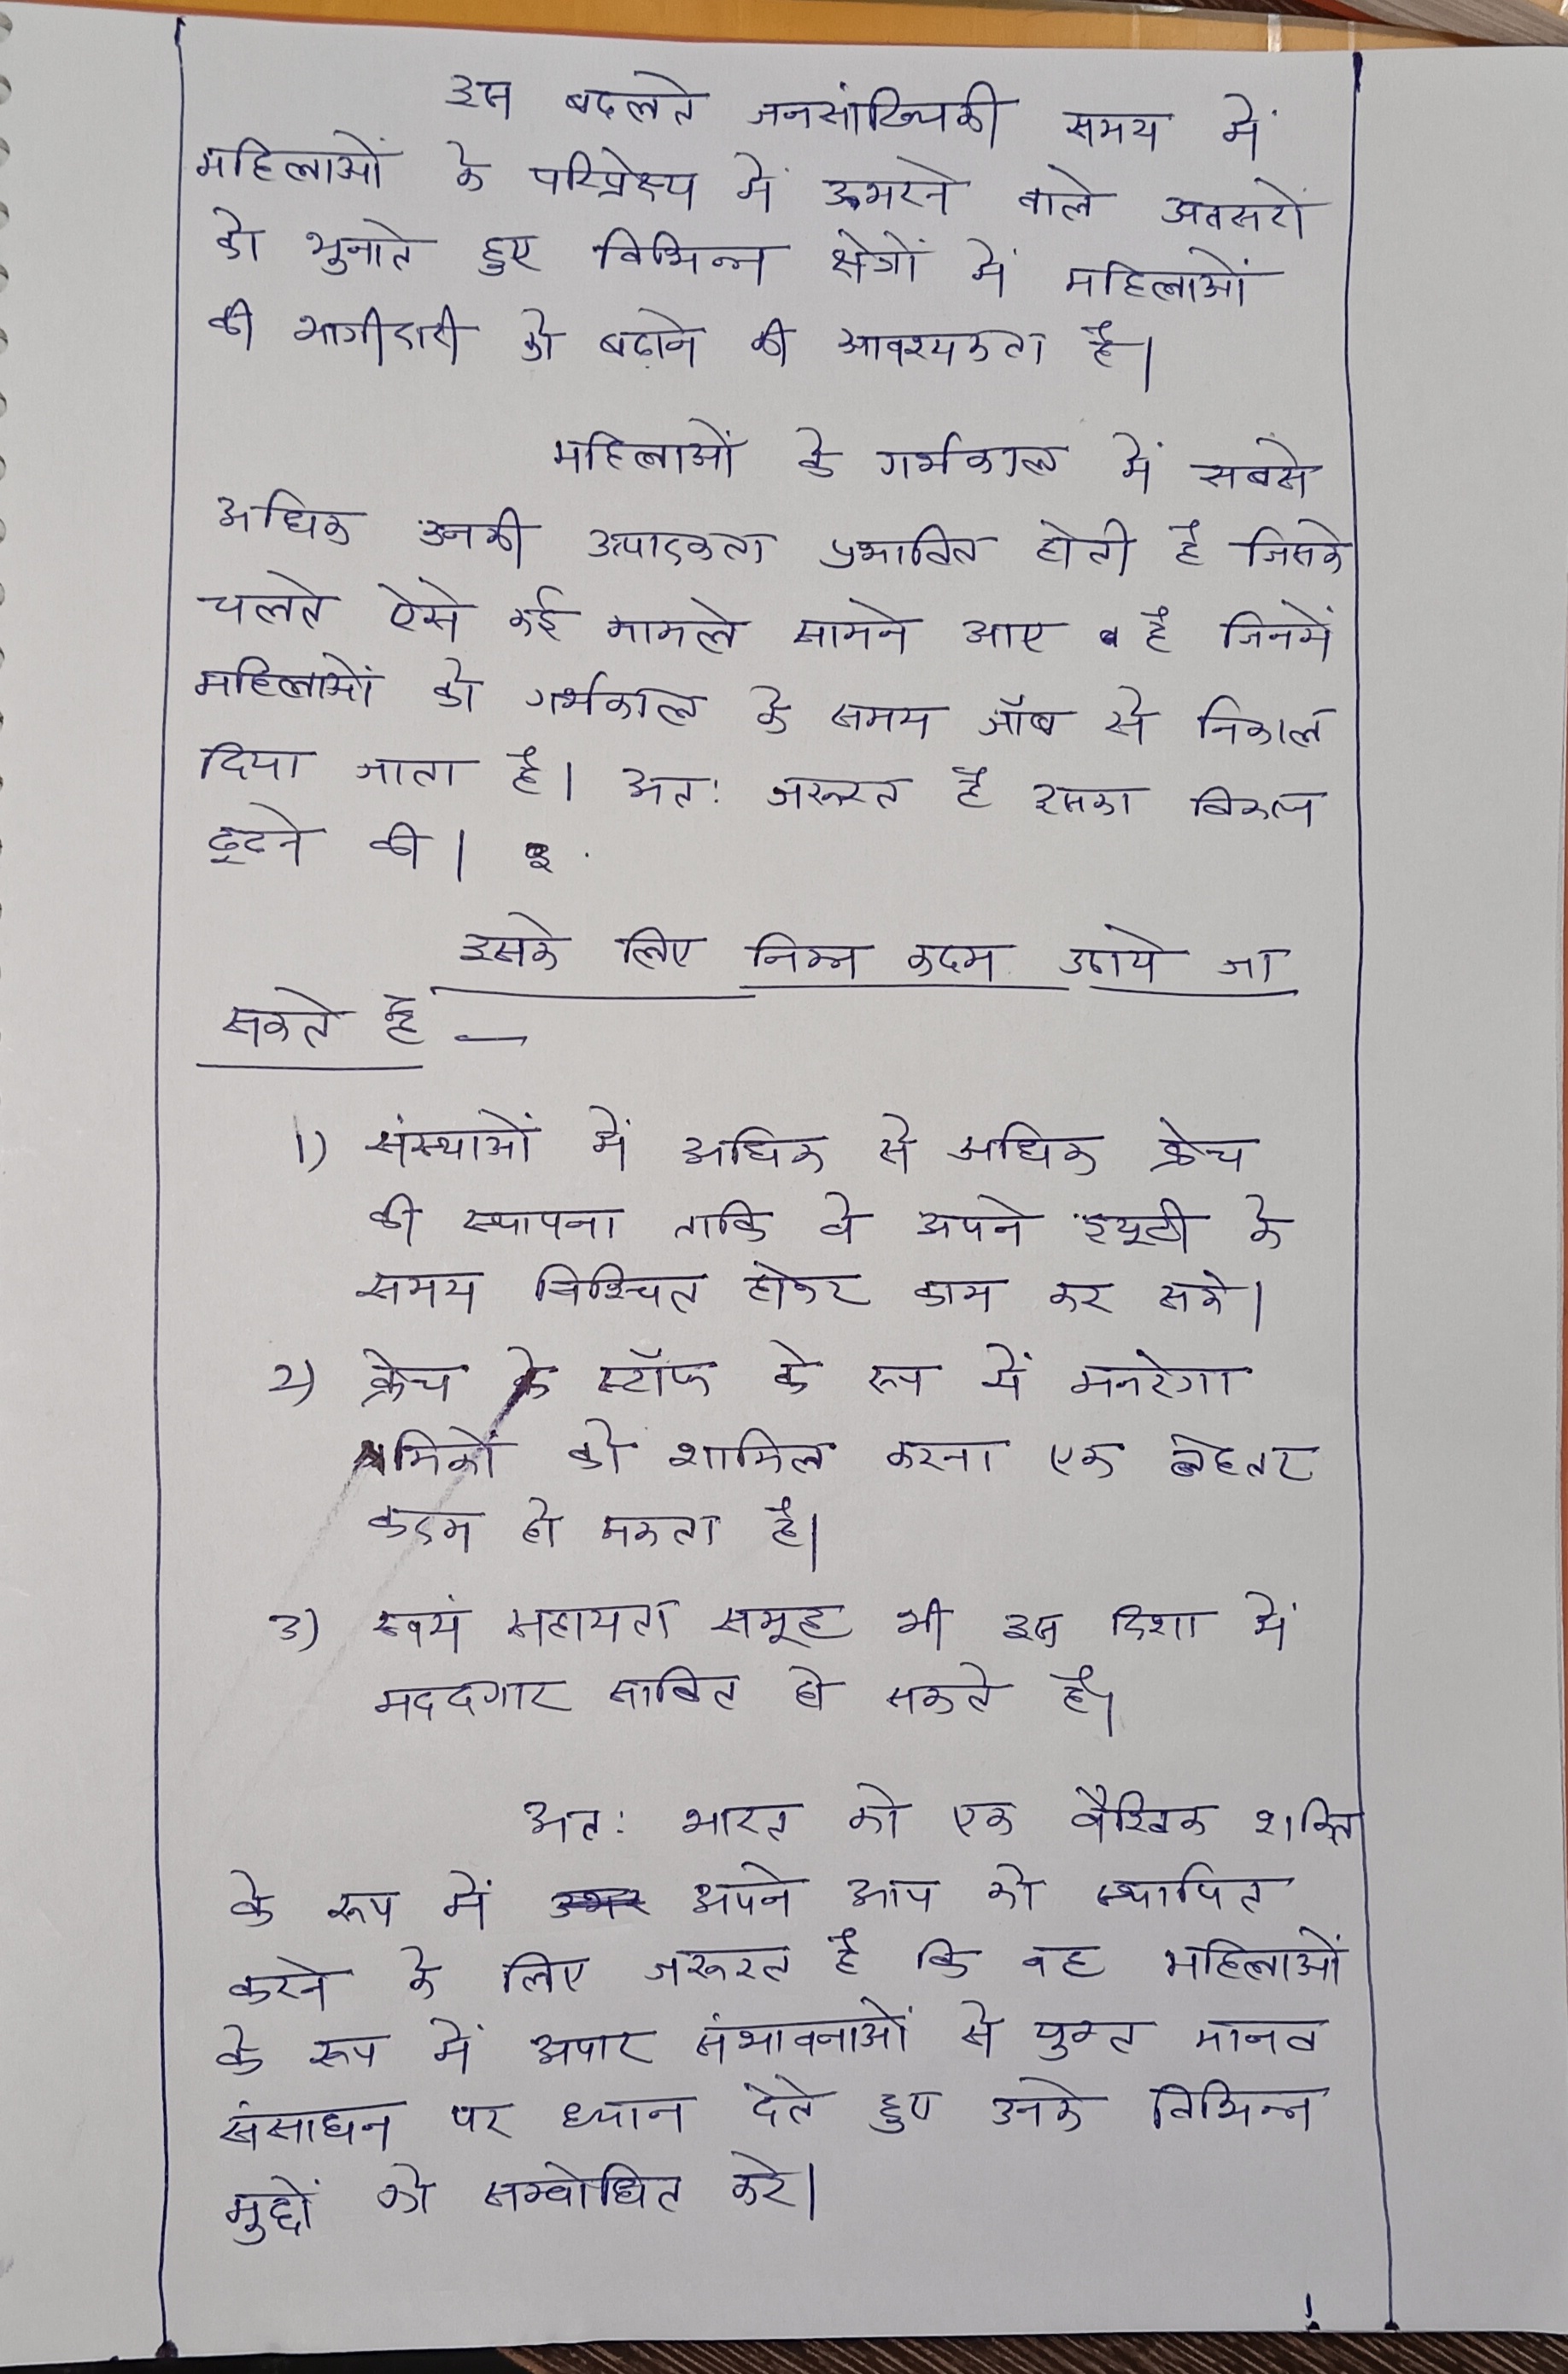 इस बदलते जनसांख्यिकी समय में
महिलाओं के परिप्रेक्ष्य में उभरने वाले अवसरों
को भुनाते हुए विभिन्न क्षेत्रों में महिलाओं
की भागीदारी को बढ़ाने की आवश्यकता है।
महिलाओं के गर्भकाल में सबसे
अधिक उनकी उत्पादकता प्रभावित होती है जिसके
चलते ऐसे कई मामले सामने आए है जिनमें
महिलाओं को गर्भकाल के समय जॉब से निकाल
दिया जाता है। अतः जरूरत है इसका विकल्प
ढूढने की।
इसके लिए निम्न कदम उठाये जा
सकते हैं —
1) संस्थाओं में अधिक से अधिक क्रेच
की स्थापना ताकि वे अपने ड्यूटी के
समय निश्चित होकर काम कर सके।
2) क्रेच के स्टॉफ के रूप में मनरेगा
श्रमिकों को शामिल करना एक बेहतर
कदम हो सकता है।
3) स्वयं सहायता समूह भी इस दिशा में
मददगार साबित हो सकते है।
अतः भारत को एक वैश्विक शक्ति
के रूप में अपने आप को स्थापित
करने के लिए जरूरत है कि वह महिलाओं
के रूप में अपार संभावनाओं से युक्त मानव
संसाधन पर ध्यान देते हुए उनके विभिन्न
मुद्दों को सम्बोधित करे।